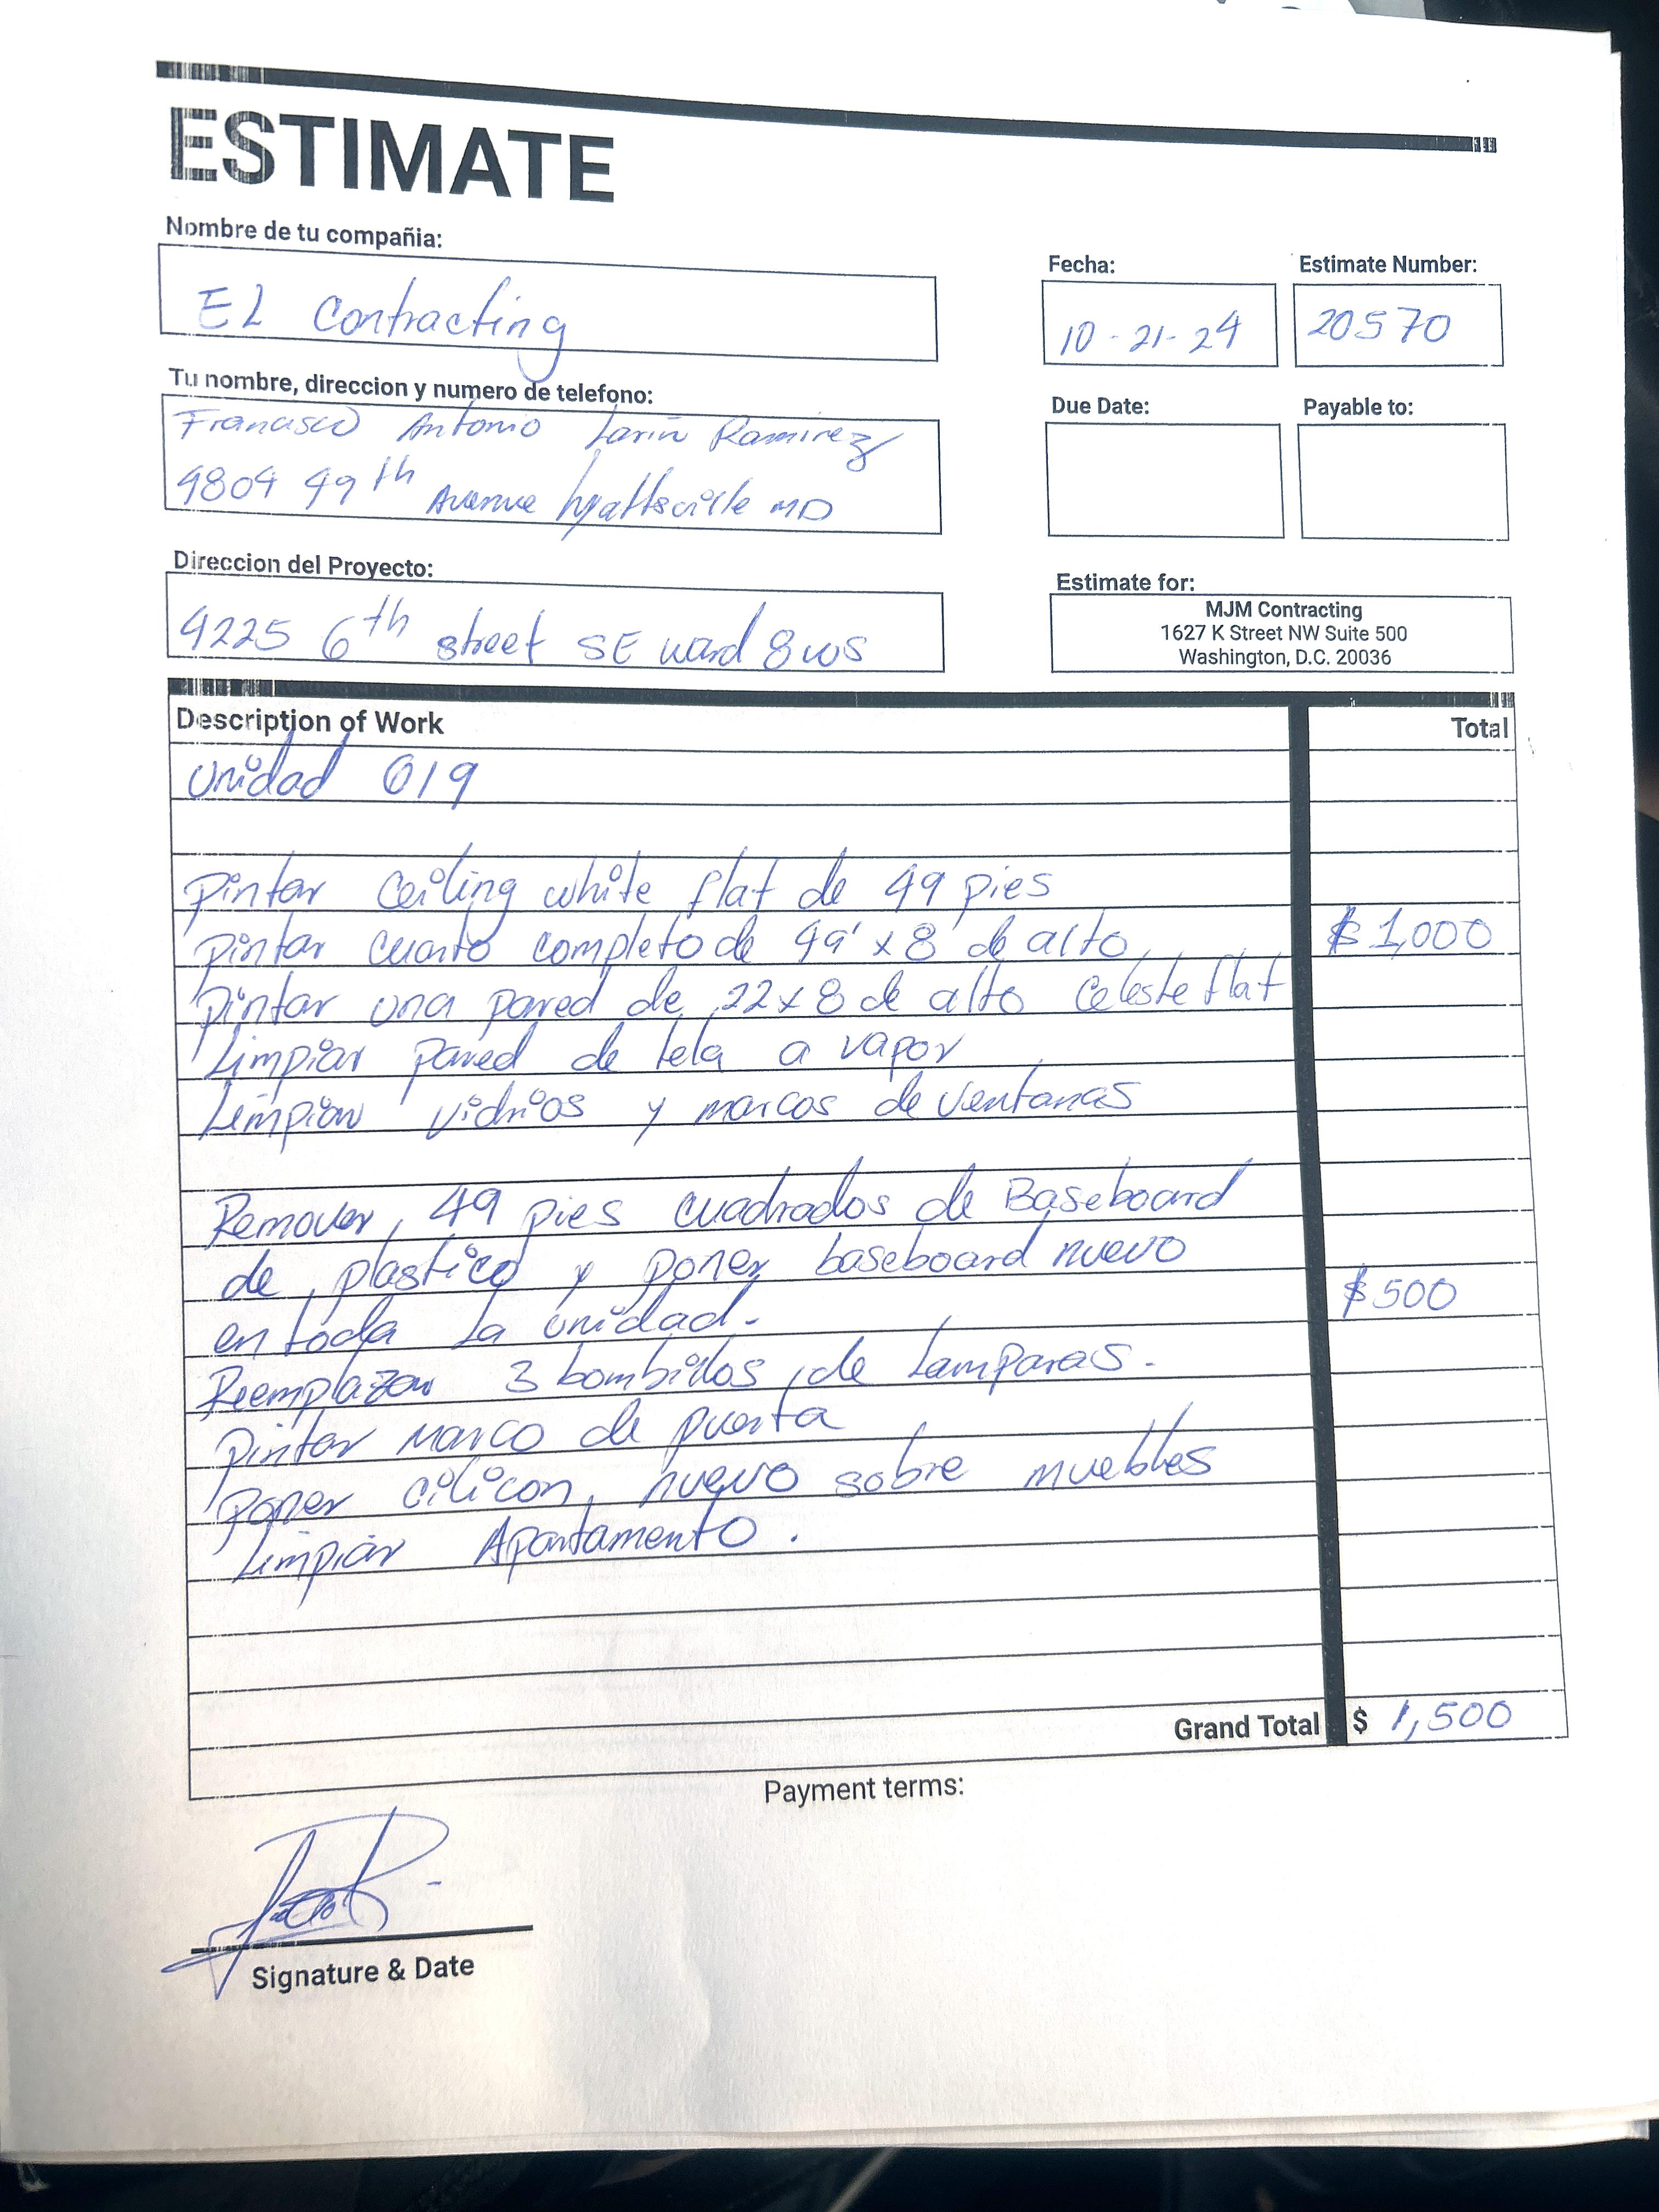 ESTIMATE
Nombre de tu compañia:
EL Contracting
Fecha:
10-21-24
Estimate Number:
20570
Tu nombre, direccion y numero de telefono:
Francisco Antonio Larin Ramirez
4809 49th Avenue Hyattsville MD
Due Date:
Payable to:
Direccion del Proyecto:
4225 6th street SE ward 8 WS
Estimate for:
MJM Contracting
1627 K Street NW Suite 500
Washington, D.C. 20036
Description of Work Total
Unidad 619
Pintar Ceiling white flat de 49 pies
Pintar cuarto completo de 49' x 8' de alto $1,000
Pintar una pared de 22x8 de alto Celeste flat
Limpiar pared de tela a vapor
Limpiar vidrios y marcos de ventanas
Remover 49 pies cuadrados de Baseboard
de plastico y poner baseboard nuevo
en toda la unidad. $500
Reemplazar 3 bombidos de Lamparas.
Pintar Marco de puerta
Poner cilicon nuevo sobre muebles
Limpiar Apartamento.
Grand Total $ 1,500
Payment terms:
Signature & Date